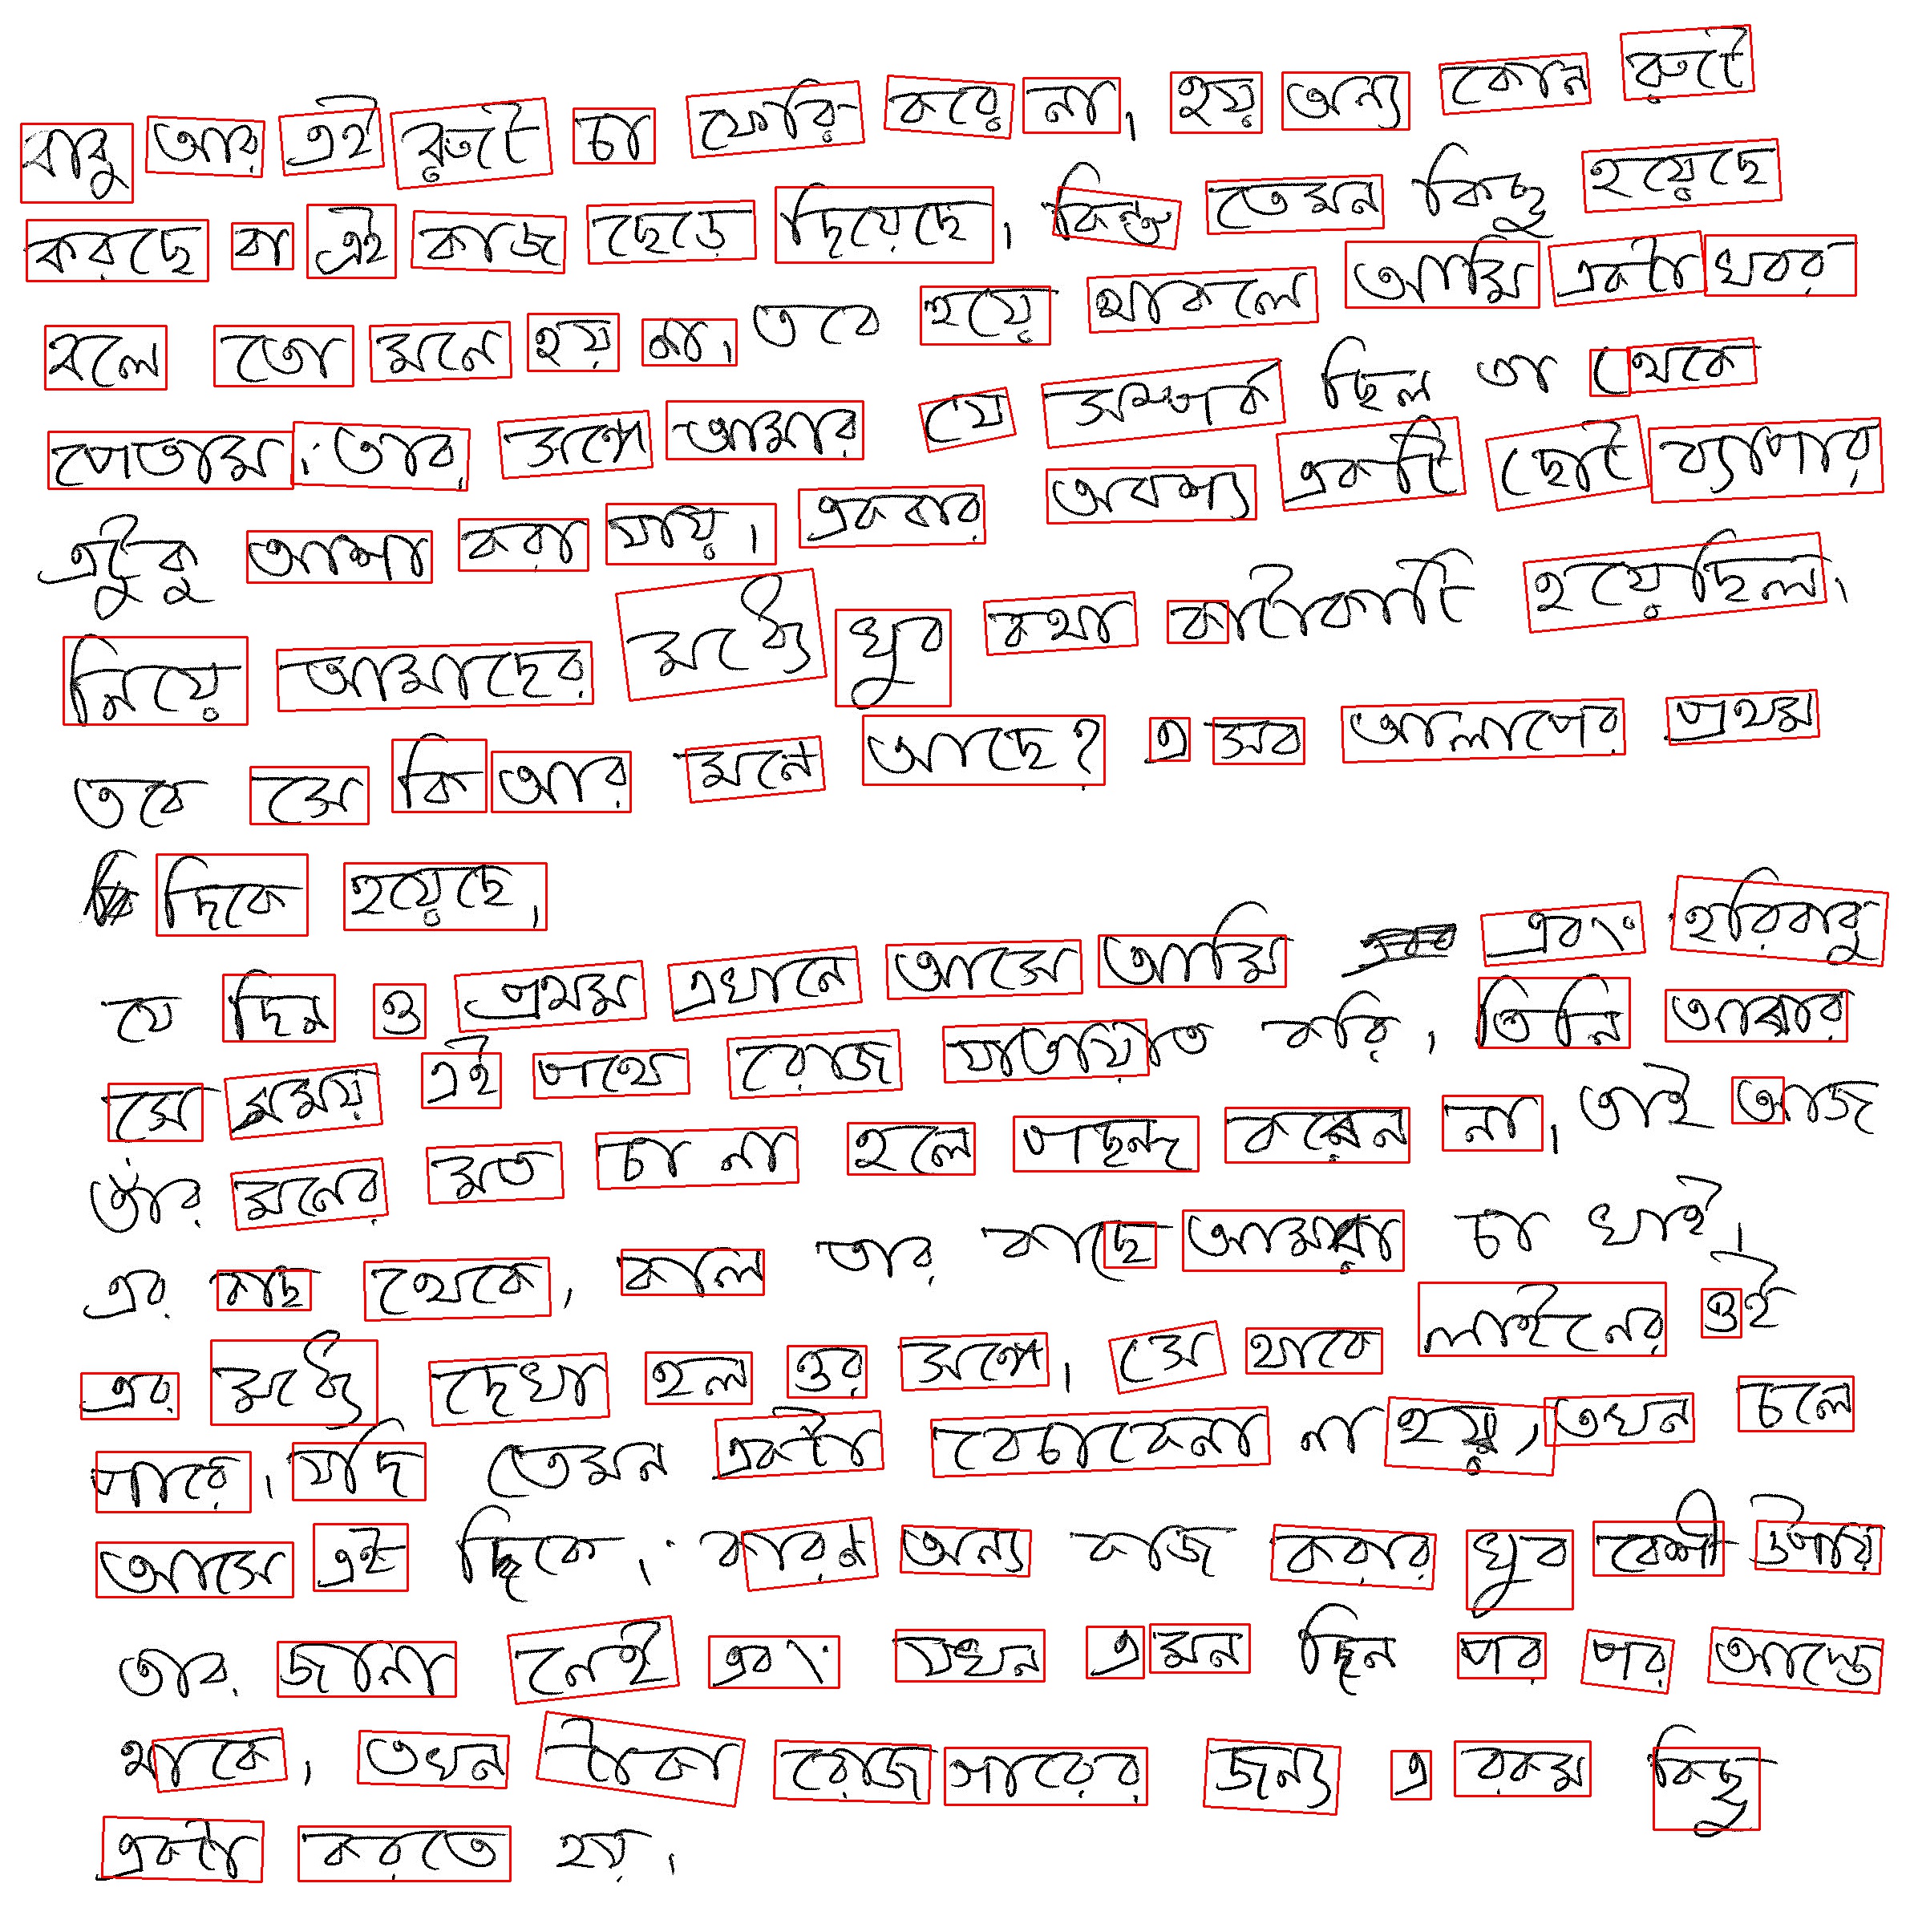 বাবু আর এই রুটে চা ফেরি করে না। হয় অন্য কোন রুটে
করছে বা এই কাজ ছেড়ে দিয়েছে। কিন্তু তেমন কিছু হয়েছে
বলে তো মনে হয় না। তবে হয়ে থাকলে আমি একটা খবর
পেতাম। তার সঙ্গে আমার যে সম্পর্ক ছিল তা থেকে
এটুকু আশা করা যায়। একবার অবশ্য একটি ছোট ব্যাপার
নিয়ে আমাদের মধ্যে খুব কথা কাটাকাটি হয়েছিল।
তবে সে কি আর মনে আছে? এ সব আলাপের প্রথম
দিকে হয়েছে।
যে দিন ও প্রথম এখানে আসে আমি এবং হরিবাবু
সে সময় এই পথে রোজ যাতায়াত করি। তিনি আবার
তাঁর মনের মত চা না হলে পছন্দ করেন না। তাই আজ
এর কাছ থেকে, কাল তার কাছে আমরা চা খাই।
এর মধ্যে দেখা হল ওর সঙ্গে। সে থাকে লাইনের ওই
পারে। যদি তেমন একটা বেচাকেনা না হয়, তখন চলে
আসে এই দিকে। কারণ অন্য কাজ করার খুব বেশী উপায়
তার জানা নেই এবং যখন এমন দিন পর পর আসতে
থাকে, তখন টাকা রোজগারের জন্য এ রকম কিছু
একটা করতে হয়।